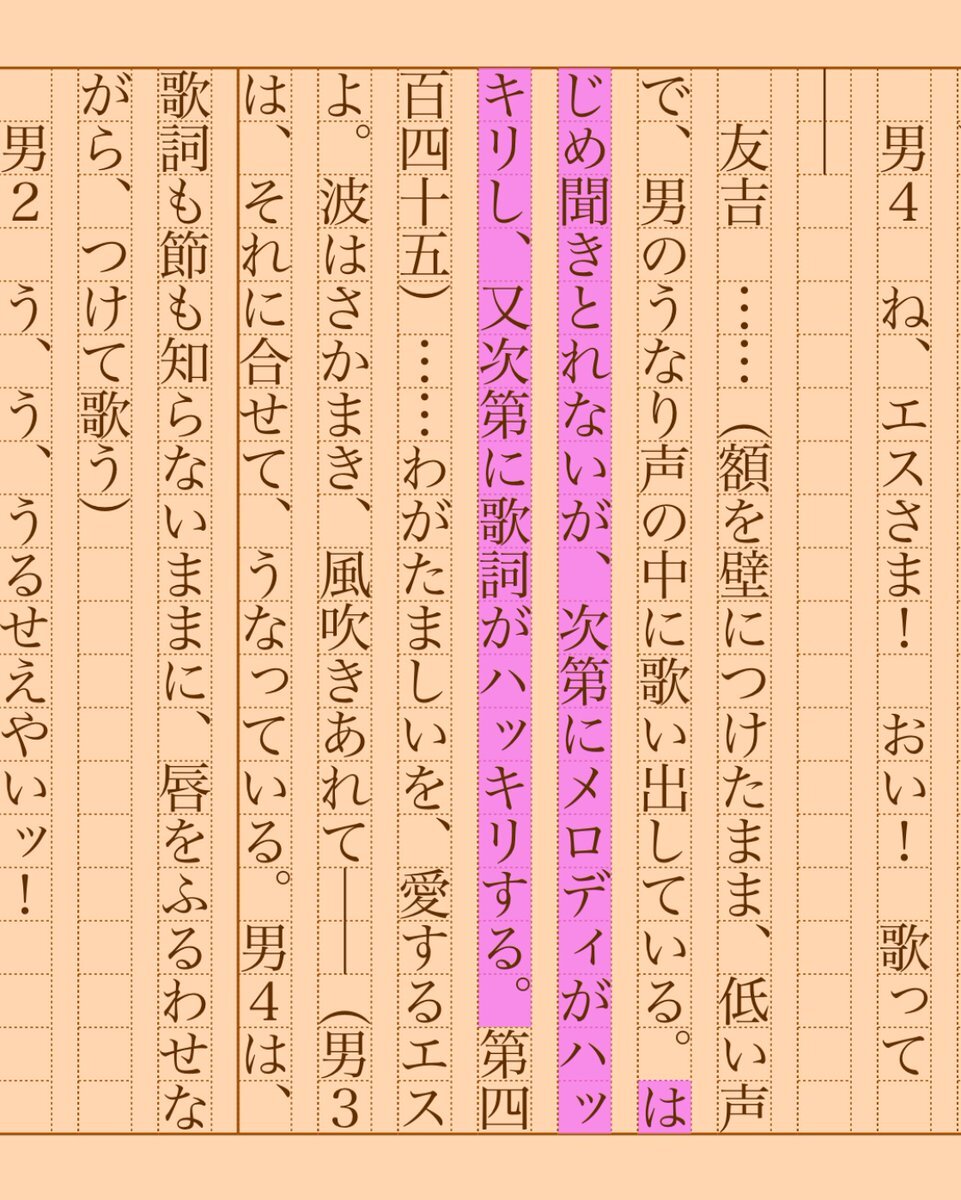 男４　ね、エスさま！　おい！　歌って
――
友吉　……（額を壁につけたまま、低い声
で、男のうなり声の中に歌い出している。は
じめ聞きとれないが、次第にメロディがハッ
キリし、又次第に歌詞がハッキリする。第四
百四十五）……わがたましいを、愛するエス
よ。波はさかまき、風吹きあれて――（男３
は、それに合せて、うなっている。男４は、
歌詞も節も知らないままに、唇をふるわせな
がら、つけて歌う）
男２　う、う、うるせえやいッ！